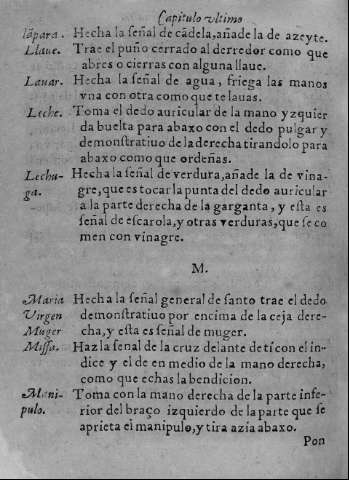 Capitulo vltimo
lãpara. Hecha la señal de cãdela, añade la de azeyte.
Llaue. Trae el puño cerrado al derredor como que
abres o cierras con alguna llaue.
Lauar. Hecha la señal de agua, friega las manos
vna con otra como que te lauas.
Leche. Toma el dedo auricular de la mano yzquier
da buelta para abaxo con el dedo pulgar y
demonstratiuo de la derecha tirandolo para
abaxo como que ordeñas.
Lechu- Hecha la señal de verdura, añade la de vina-
ga. gre, que es tocar la punta del dedo auricular
a la parte derecha de la garganta, y esta es
señal de escarola, y otras verduras, que se co
men con vinagre.
M.
Maria Hecha la señal general de santo trae el dedo
Virgen demonstratiuo por encima de la ceja dere-
Muger cha, y esta es señal de muger.
Missa. Haz la señal de la cruz delante de ti con el in-
dice y el de en medio de la mano derecha,
como que echas la bendicion.
Mani- Toma con la mano derecha de la parte infe-
pulo. rior del braço izquierdo de la parte que se
aprieta el manipulo, y tira azia abaxo.
Pon